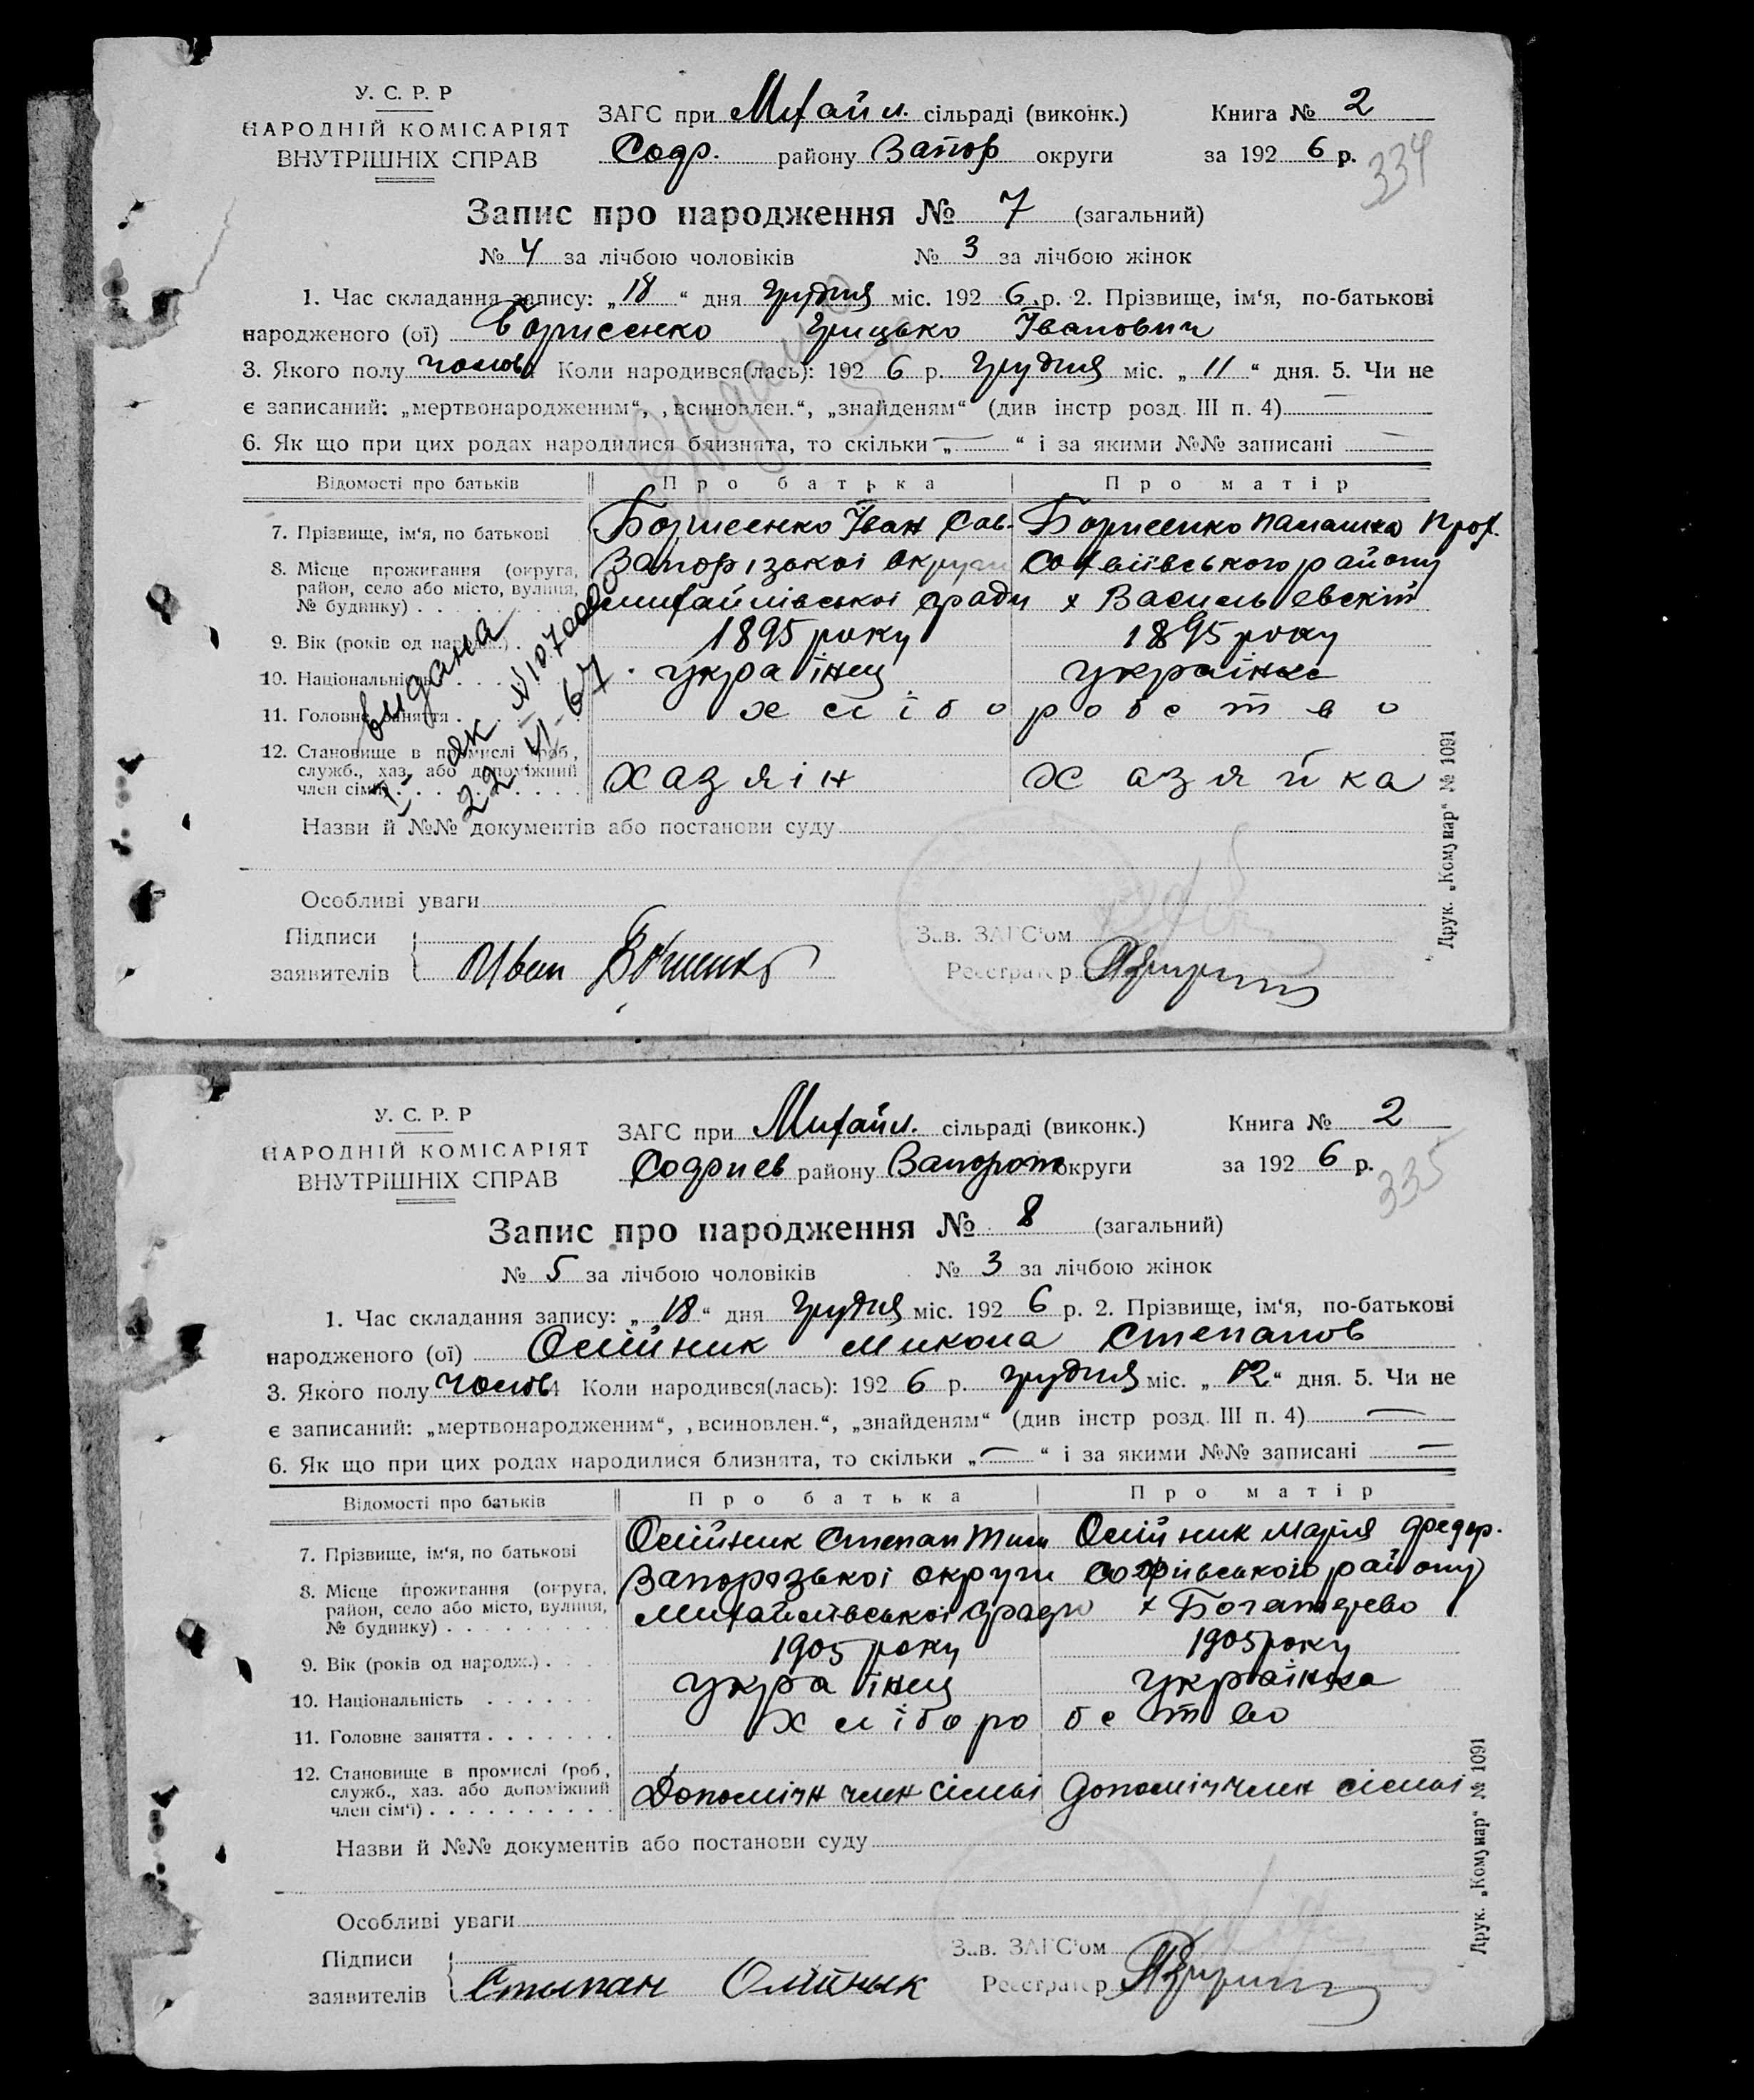 У. С. Р. Р
НАРОДНІЙ КОМІСАРІЯТ
ВНУТРІШНІХ СПРАВ
ЗАГС при Михайл. сільраді (виконк.) Книга № 2
Софр. району Запор округи за 192 6 р.
334
Запис про народження № 7 (загальний)
№ 4 за лічбою чоловіків № 3 за лічбою жінок
1. Час складання запису: „18“ дня Грудня міс. 192 6 р. 2. Прізвище, ім‘я, по-батькові
народженого (ої) Борисенко Грицько Іванович
3. Якого полу чолов Коли народився(лась): 192 6 р. Грудня міс. „11“ дня. 5. Чи не
є записаний: „мертвонародженим“, „всиновлен.“, „знайденям“ (див інстр розд. III п. 4)
6. Як що при цих родах народилися близнята, то скільки „—“ і за якими №№ записані —
Відомості про батьків Про батька Про матір
7. Прізвище, ім‘я, по батькові Борисенко Іван Сав. Борисенко Палашка Проф.
8. Місце проживання (округа, район, село або місто, вулиця, № будинку) Запорізької округи Софіївського району
Михайлівської с/ради х Васильевский
9. Вік (років од народж.) 1895 року 1895 року
10. Національність українец українка
11. Головне заняття хліборобство
12. Становище в промислі (роб, служб., хаз. або допоміжний член сім‘ї) хазяін хазяйка
видана
22 VI-67
Назви й №№ документів або постанови суду
Особливі уваги
Підписи заявителів Иван
Зав. ЗАГС‘ом
Реєстратер
Друк. „Комунар“ № 1091
У. С. Р. Р
НАРОДНІЙ КОМІСАРІЯТ
ВНУТРІШНІХ СПРАВ
ЗАГС при Михайл. сільраді (виконк.) Книга № 2
Софиев району Запорож округи за 192 6 р.
335
Запис про народження № 8 (загальний)
№ 5 за лічбою чоловіків № 3 за лічбою жінок
1. Час складання запису: „18“ дня Грудня міс. 192 6 р. 2. Прізвище, ім‘я, по-батькові
народженого (ої) Олійник Микола Степанов
3. Якого полу чолов Коли народився(лась): 192 6 р. Грудня міс. „12“ дня. 5. Чи не
є записаний: „мертвонародженим“, „всиновлен.“, „знайденям“ (див інстр розд. III п. 4) —
6. Як що при цих родах народилися близнята, то скільки „—“ і за якими №№ записані —
Відомості про батьків Про батька Про матір
7. Прізвище, ім‘я, по батькові Олійник Степан Тим Олійник Марія Федор.
8. Місце проживання (округа, район, село або місто, вулиця, № будинку) Запорізької округи Софіївського району
Михайлівської с/ради х Богатирево
9. Вік (років од народж.) 1905 року 1905 року
10. Національність українец українка
11. Головне заняття хліборобство
12. Становище в промислі (роб, служб., хаз. або допоміжний член сім‘ї) Допоміжн член сімьі допоміж член сімьі
Назви й №№ документів або постанови суду
Особливі уваги
Підписи заявителів Степан Олійнык
Зав. ЗАГС‘ом
Реєстратер
Друк. „Комунар“ № 1091